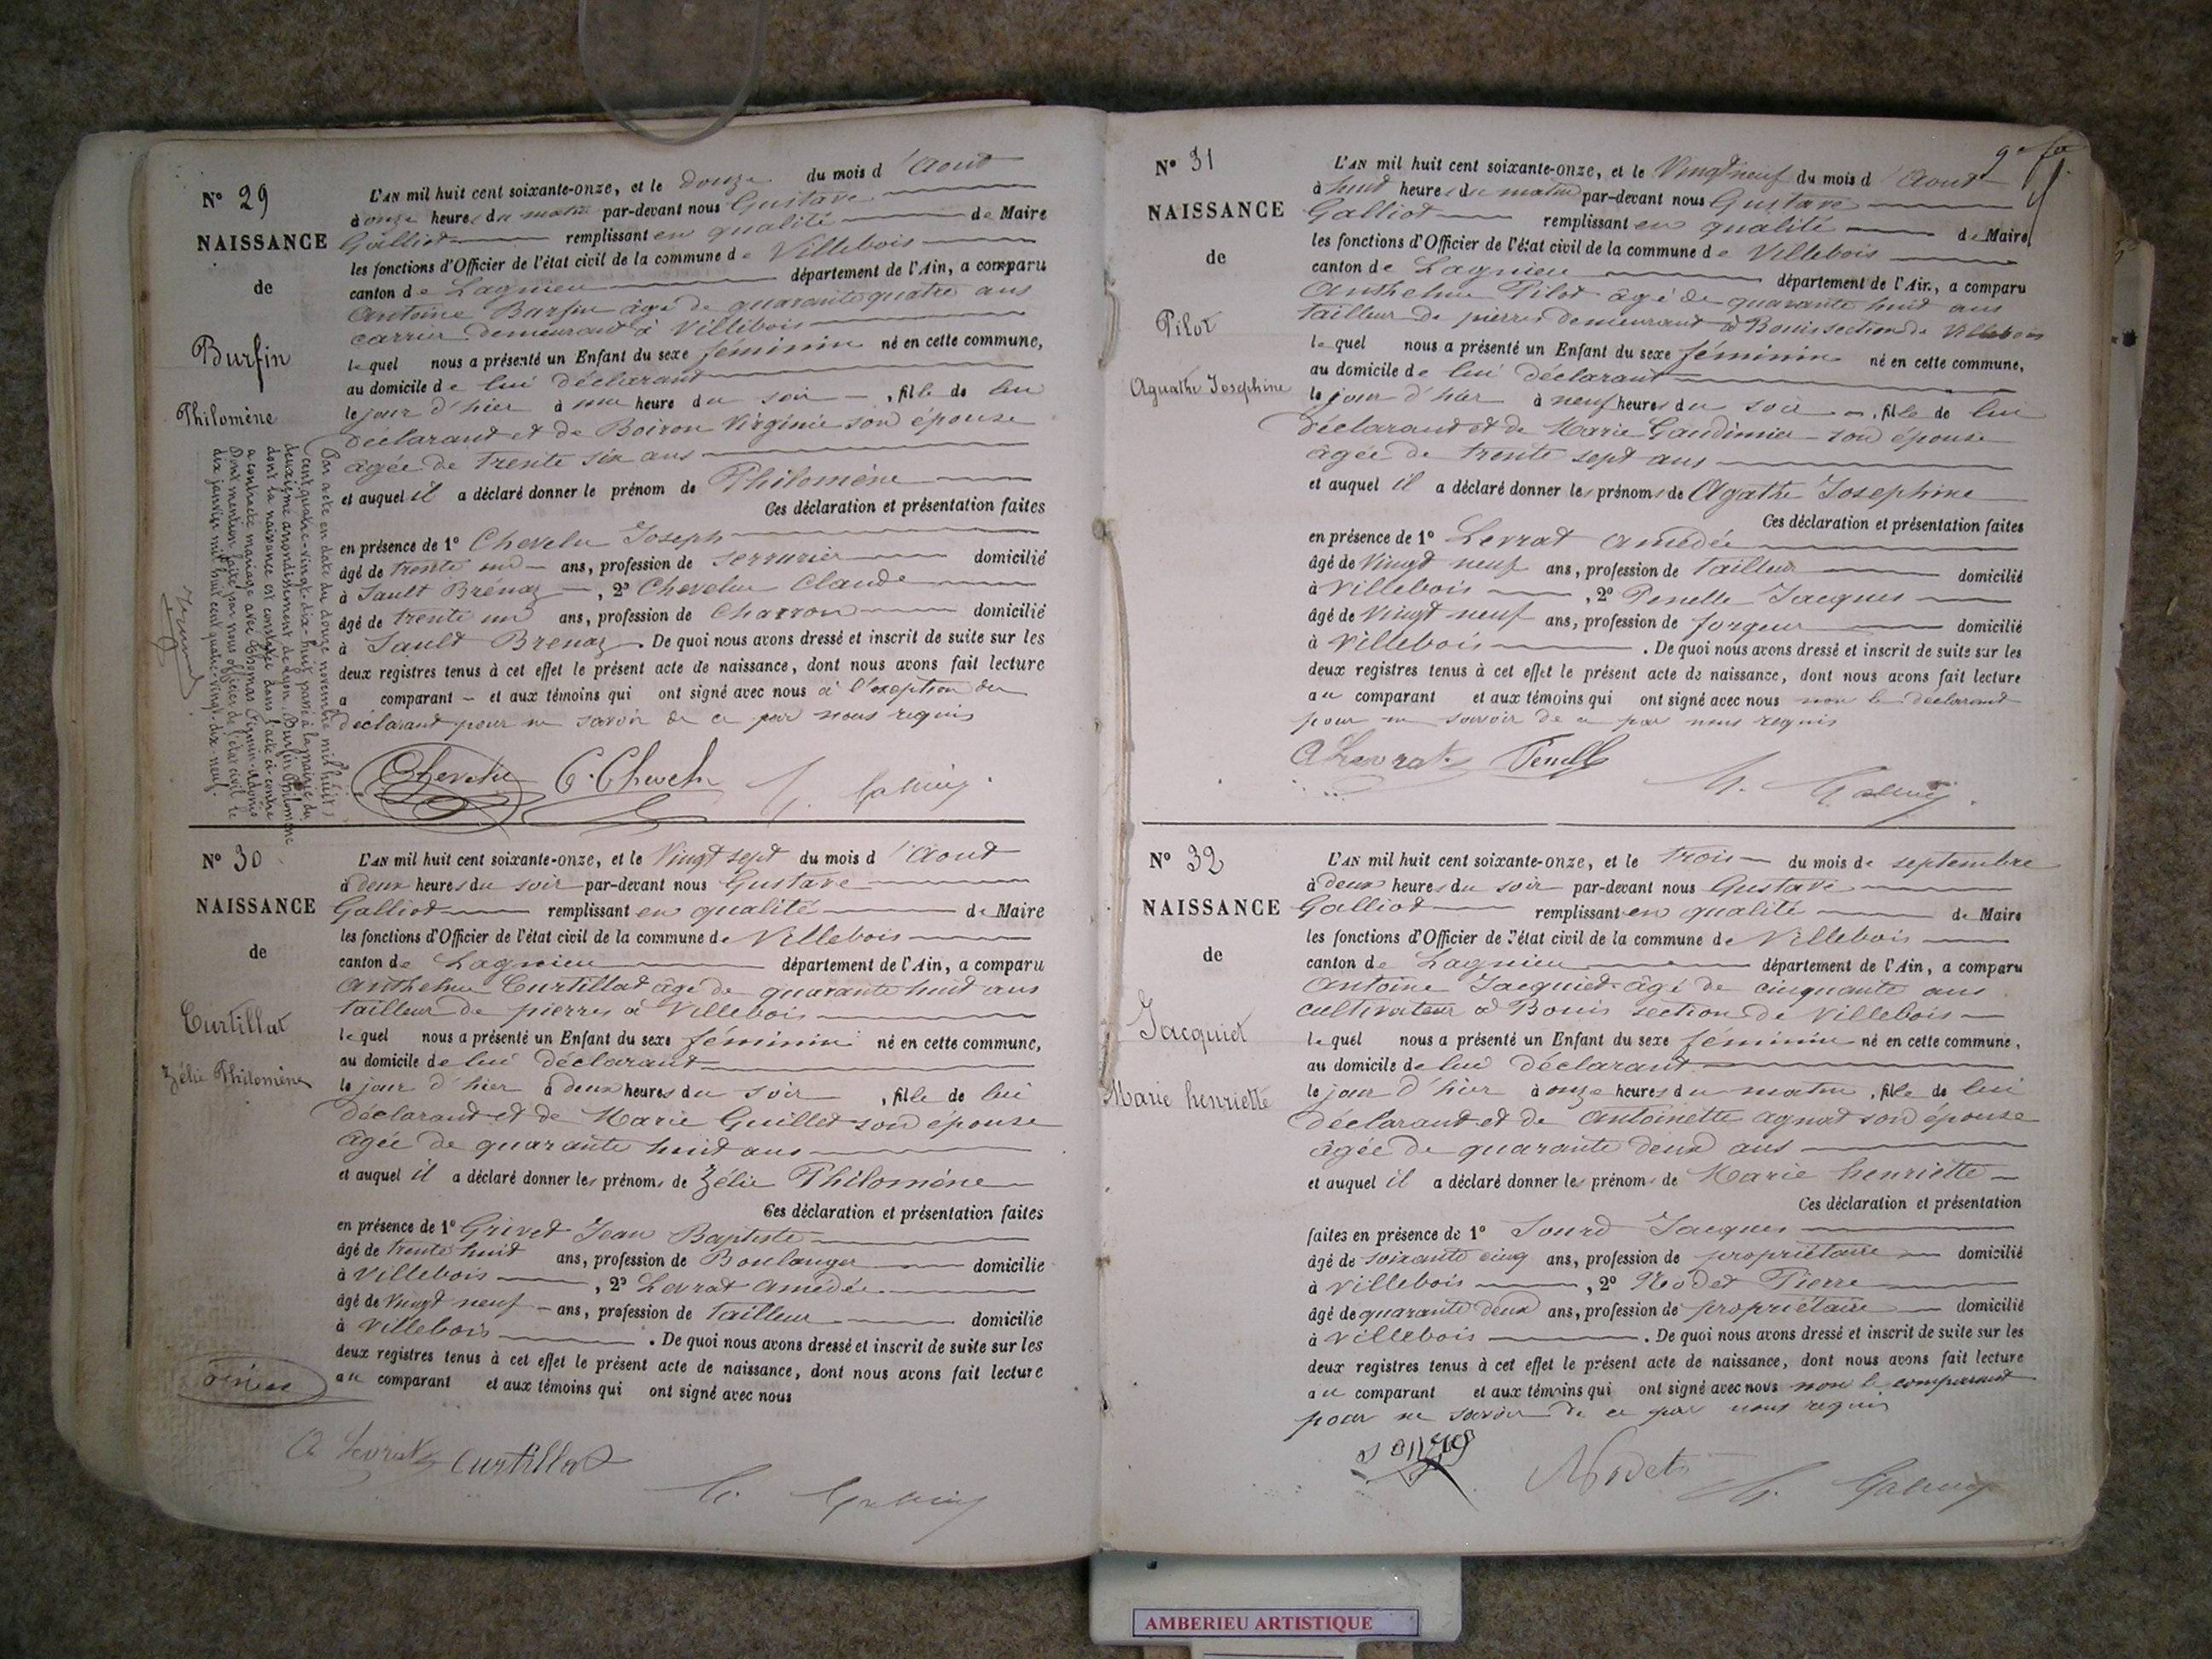 N° 29
NAISSANCE
de
Burfin
Philomène
L'AN mil huit cent soixante-onze, et le douze du mois d'Aout
à onze heures du matin par-devant nous Gustave
Galliot remplissant en qualité de Maire
les fonctions d'Officier de l'état civil de la commune de Villebois
canton de Lagnieu département de l'Ain, a comparu
Antoine Burfin âgé de quarante quatre ans
carrier demeurant à Villebois
lequel nous a présenté un Enfant du sexe féminin né en cette commune,
au domicile de lui déclarant
le jour d'hier à une heure du soir, fille de lui
déclarant et de Boiron Virginie son épouse
âgée de trente six ans
et auquel il a déclaré donner le prénom de Philomène
Ces déclaration et présentation faites
en présence de 1° Chevelu Joseph
âgé de trente un ans, profession de serrurier domicilié
à Sault Brénaz, 2° Chevelu Claude
âgé de trente un ans, profession de Charron domicilié
à Sault Brenaz. De quoi nous avons dressé et inscrit de suite sur les
deux registres tenus à cet effet le présent acte de naissance, dont nous avons fait lecture
a comparant et aux témoins qui ont signé avec nous à l'exception du
déclarant pour ne savoir de ce par nous requis
Chevelu C. Chevelu
Par acte en date du douze novembre mil huit
cent quatre-vingt-dix-huit passé à la mairie du
deuxième arrondissement de Lyon, Burfin Philomène
dont la naissance est constatée dans l'acte ci-contre
a contracté mariage avec Thomas Firmin Adonis
Dont mention faite par nous officier de l'état civil le
dix janvier mil huit cent quatre-vingt-dix-neuf.
N° 30
NAISSANCE
de
Curtillat
Zélie Philomène
L'AN mil huit cent soixante-onze, et le Vingt sept du mois d'Aout
à deux heures du soir par-devant nous Gustave
Galliot remplissant en qualité de Maire
les fonctions d'Officier de l'état civil de la commune de Villebois
canton de Lagnieu département de l'Ain, a comparu
Anthelme Curtillat âgé de quarante huit ans
tailleur de pierres à Villebois
lequel nous a présenté un Enfant du sexe féminin né en cette commune,
au domicile de lui déclarant
le jour d'hier à deux heures du soir, fille de lui
déclarant et de Marie Guillet son épouse
âgée de quarante huit ans
et auquel il a déclaré donner les prénoms de Zélie Philomène
Ces déclaration et présentation faites
en présence de 1° Grivet Jean Baptiste
âgé de trente huit ans, profession de Boulanger domicilié
à Villebois, 2° Levrat Amédée
âgé de Vingt neuf ans, profession de Tailleur domicilié
à Villebois. De quoi nous avons dressé et inscrit de suite sur les
deux registres tenus à cet effet le présent acte de naissance, dont nous avons fait lecture
au comparant et aux témoins qui ont signé avec nous
A Levrat Curtillat
N° 31
NAISSANCE
de
Pilot
Aguathe Josephine
L'AN mil huit cent soixante-onze, et le Vingt neuf du mois d'Aout
à huit heures du matin par-devant nous Gustave
Galliot remplissant en qualité de Maire
les fonctions d'Officier de l'état civil de la commune de Villebois
canton de Lagnieu département de l'Ain, a comparu
Anthelme Pilot âgé de quarante huit ans
tailleur de pierres demeurant à Bouis section de Villebois
lequel nous a présenté un Enfant du sexe féminin né en cette commune,
au domicile de lui déclarant
le jour d'hier à neuf heures du soir, fille de lui
déclarant et de Marie Gaudimier son épouse
âgée de trente sept ans
et auquel il a déclaré donner les prénoms de Agathe Josephine
Ces déclaration et présentation faites
en présence de 1° Levrat Amédée
âgé de Vingt neuf ans, profession de Tailleur domicilié
à Villebois, 2° Penelle Jacques
âgé de Vingt neuf ans, profession de forgeur domicilié
à Villebois. De quoi nous avons dressé et inscrit de suite sur les
deux registres tenus à cet effet le présent acte de naissance, dont nous avons fait lecture
au comparant et aux témoins qui ont signé avec nous non le déclarant
pour ne savoir de ce par nous requis
A Levrat Penelle
N° 32
NAISSANCE
de
Jacquiet
Marie henriette
L'AN mil huit cent soixante-onze, et le trois du mois de septembre
à deux heures du soir par-devant nous Gustave
Galliot remplissant en qualité de Maire
les fonctions d'Officier de l'état civil de la commune de Villebois
canton de Lagnieu département de l'Ain, a comparu
Antoine Jacquiet âgé de cinquante ans
cultivateur à Bouis section de Villebois
lequel nous a présenté un Enfant du sexe féminin né en cette commune,
au domicile de lui déclarant
le jour d'hier à onze heures du matin, fille de lui
déclarant et de Antoinette agnat son épouse
âgée de quarante deux ans
et auquel il a déclaré donner les prénoms de Marie henriette
Ces déclaration et présentation
faites en présence de 1° Sourd Jacques
âgé de soixante cinq ans, profession de propriétaire domicilié
à Villebois, 2° Nodet Pierre
âgé de quarante deux ans, profession de propriétaire domicilié
à Villebois. De quoi nous avons dressé et inscrit de suite sur les
deux registres tenus à cet effet le présent acte de naissance, dont nous avons fait lecture
au comparant et aux témoins qui ont signé avec nous non le comparant
pour ne savoir de ce par nous requis
Nodet
AMBERIEU ARTISTIQUE